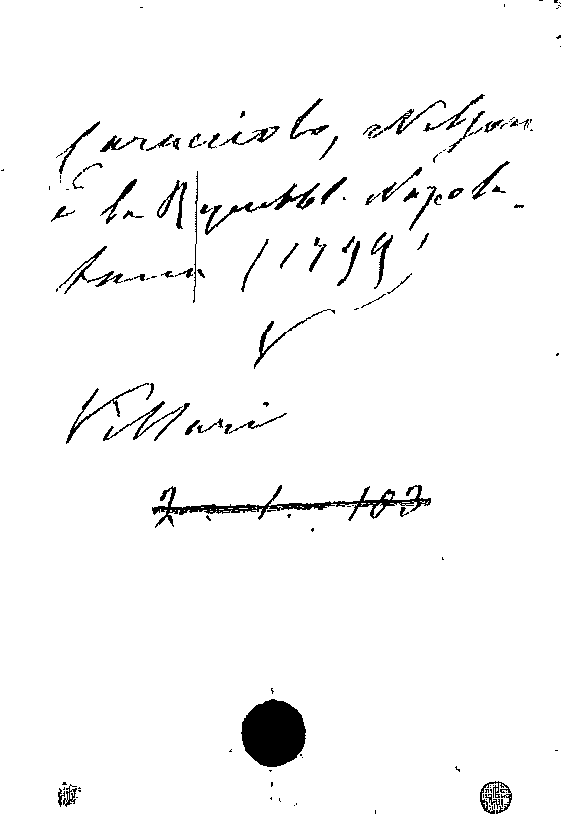 Caracciolo, Nelson
e la Repubbl. Napole-
tana (1799)
V
Villari
2 1 103